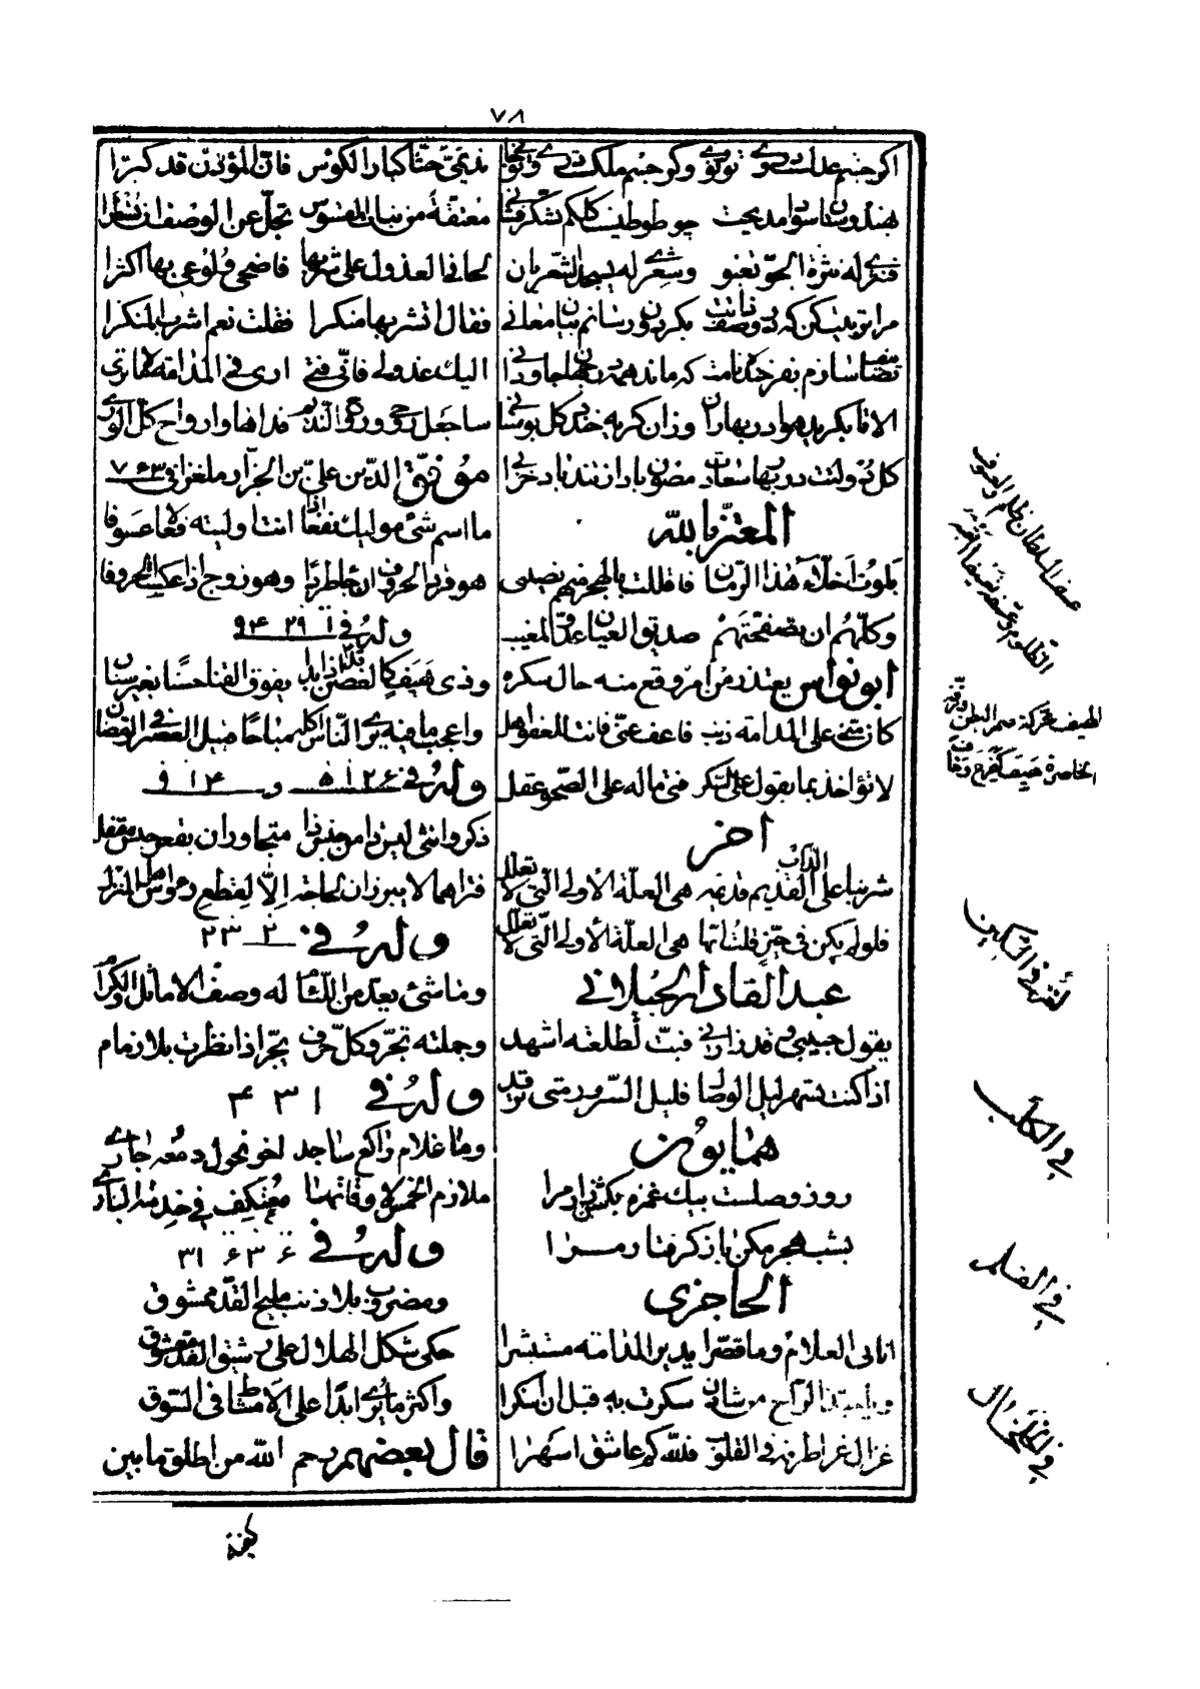 ٧٨
اگر جسم عدلست روی توئی وگر جسم ملکت
هندوستان سواد مدیحت چو طوطیست کلکم بشکر فشانی
فنثری له نثرة الجو تعنو وشعری له یسجد الشعریان
مرا تربیت کن که در وصف ذاتت بکردون رسانم بنان معانی
که ماند همی در جهان جاودانی
الا تا بگرید هوا در بهاران وزان گریه خندد گل بوستانی
گل دولتت در بهار سعادت مصون باد از تندباد خزانی
المعتز بالله
بلوت أخلاء هذا الزمان فاقللت بالهجر منهم نصیبی
وکلهم ان تصفحتهم صدیق العیان عدو المغیب
ابو نواس یعتذر من امر وقع منه حال سکره
کان منی علی المدامة ذنب فاعف عنی فانت للعفو اهل
لا تؤاخذ بما یقول علی السکر فتی ماله علی الصحو عقل
آخر
شربنا علی الذات القدیم قدیمة هی العلة الأولی التی لا تعلل
فلو لم یکن فی حیز قلت انها هی العلة الأولی التی لا تعلل
عبد القادر الجیلانی
یقول حبیبی قد زارنی فبت لطلعته اشهد
اذا کنت تسهر لیل الوصال فلیل السرور متی ترقد
همایون
روز وصلست بیک غمزه بکش زار مرا
بشب هجر مکن باز گرفتار مرا
الحاجری
اتانی الغلام وما قصرا یدیر المدامة مستبشرا
ویا حبذا الراح من شادن سکرت به قبل ان اسکرا
غزال غراطرفه فی القلوب فلله کم عاشق اسهرا
ندیمی حثا کبار الکؤس فان المؤذن قد کبرا
معتقة من بنات القسوس تجل عن الوصف ان تشترا
لحانی العذول علی شربها فاضحی ولوعی بها اکثرا
فقال اتشربها منکرا فقلت نعم اشرب المنکرا
الیک عذولی فانی فتی اری فی المدامة لا ما تری
ساجعل روحی وروح الندیم فداها وارواح کل الوری
موفق الدین علی بن الجزار ملغزا فی ٧۶٣
ما اسم شئ مولیک نفعا اذا انت اولیته فعلا عسوفا
هو فرد الحروف ان جاطردا وهو زوج اذا عکست الحروفا
وله فی ٩۴ ٢٩ ١
وذی هیف کالغصن قدا اذا بدا یفوق القنا حسنا بغیر سنان
واعجب ما فیه یری الناس اکله مباحا قبیل العصر فی رمضان
وله فی ۵١٢۶ و ٩١۴
ذکر وانثی لیس ذا من جنس ذا متجاوران بقعر حبس مقفل
فتراهما لا یبرزان لحاجة الا لقطع رءوس اهل المنزل
وله فی ٢٣ ٢
وما شئ یعد من اللئام له وصف الاماثل والکرام
وجملته تجر وکل حرف یجر اذا نظرت بلا زمام
وله فی ١ ٣ ۴
وما غلام راکع ساجد اخو نحول دمعه جاری
ملازم الخمس لاوقاتها معتکف فی خدمة الباری
وله فی ۶ ٣ ۶ ٣١
ومضروب بلا ذنب ملیح القد ممشوق
حکی شکل الهلال علی رشیق القد معشوق
واکثر ما یری ابدا علی الامشاط فی السوق
قال بعضهم رحم الله من اطلق ما بین
کفیه
الهیف محرکة ضمر البطن ورقة
الخاصرة هیف کفرح وخاف
لغز فی السکین
فی الکلب
فی القلم
فی الخلخال